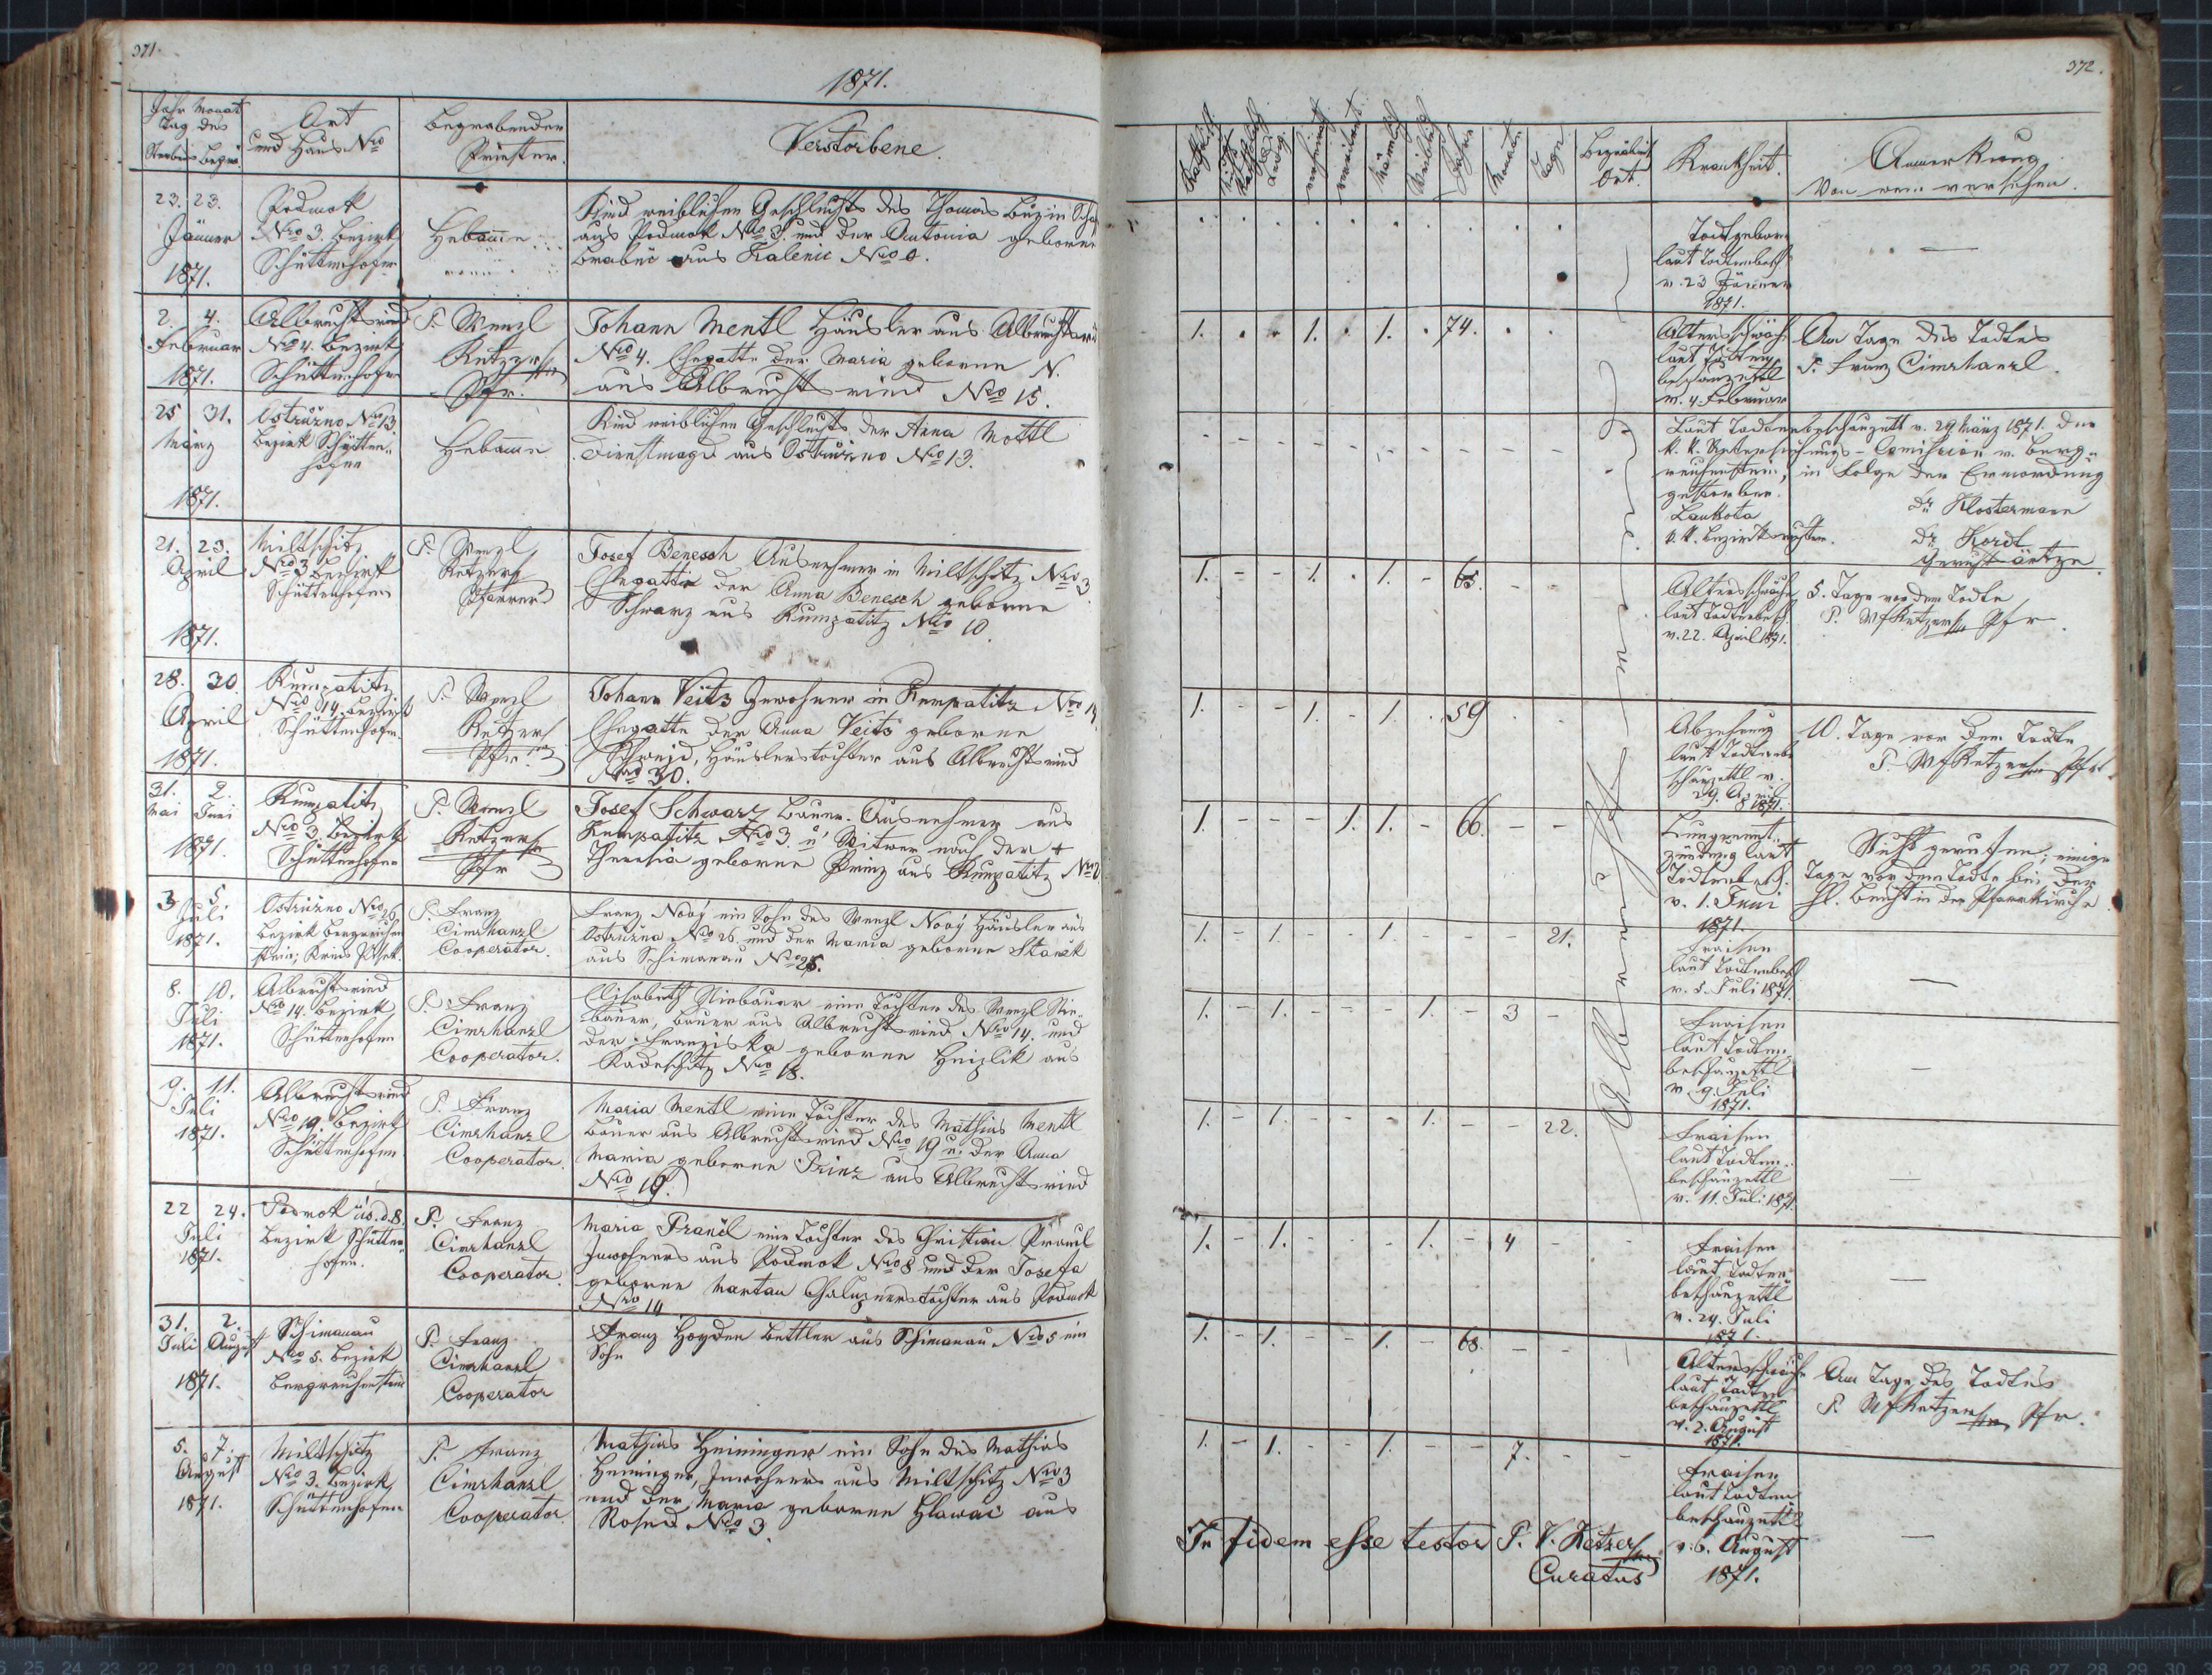 371.
1871.
Jahr Monat
Tag des
Sterbens Begr.
Ort
und Haus Nro
Begrabender
Priester.
Verstorbene.
23. 23.
Jänner
1871.
Podmok
Nro 3. Bezirk
Schüttenhofen
Hebamme
Kind weiblichen Geschlechts des Thomas
aus Podmok Nro 3. und der Antonia geborene
aus Kalenic Nro 8.
2. 4.
Februar
1871.
Albrechtsried
Nro 4. Bezirk
Schüttenhofen
P. Wenzl
Ketzer
Pfr.
Johann Mentl Häusler aus Albrechtsried
Nro 4. Ehegatte der Maria geborene N.
aus Albrechtsried Nro 15.
25 31.
März
1871.
Ostružno Nro 13
Bezirk Schütten-
hofen
Hebamme
Kind weiblichen Geschlechts der Anna Mottl
Dienstmagd aus Ostružno Nro 13.
21. 23.
April
1871.
Miltschitz
Nro 3 Bezirk
Schüttenhofen
P. Wenzl
Ketzer
Pfarrer
Josef Benesch Ausnehmer in Miltschitz Nro 3
Ehegatte der Anna Benesch geborene
Schwarz aus Kumpatitz Nro 10.
28. 30.
April
1871.
Kumpatitz
Nro 14. Bezirk
Schüttenhofen
P. Wenzl
Ketzer
Pfr.
Johann Veits Inwohner in Kumpatitz Nro 14
Ehegatte der Anna Veits geborene
Schwejd, Häuslerstochter aus Albrechtsried
Nro 30.
31. 2.
Mai Juni
1871.
Kumpatitz
Nro 3. Bezirk
Schüttenhofen
P. Wenzl
Ketzer
Pfr
Josef Schwarz Bauer. Ausnehmer aus
Kumpatitz Nro 3. u. Witwer nach der +
Theresia geborene Prinz aus Kumpatitz Nro 2
3 5.
Juli
1871.
Ostružno Nro 26
Bezirk Bergreichen
stein; Kreis Pisek.
P. Franz
Cimrhanzl
Cooperator.
Franz Nový ein Sohn des Wenzl Nový Häusler aus
Ostružna Nro 26. und der Maria geborene Staněk
aus Schimanau Nro 25.
8. 10.
Juli
1871.
Albrechtsried
Nro 14. Bezirk
Schüttenhofen
P. Franz
Cimrhanzl
Cooperator.
Elisabeth Niebauer eine Tochter des Wenzl Nie-
bauer, Bauer aus Albrechtsried Nro 14. und
der Franziska geborene Hnizlik aus
Radeschitz Nro 18.
9. 11.
Juli
1871.
Albrechtsried
Nro 19. Bezirk
Schüttenhofen
P. Franz
Cimrhanzl
Cooperator.
Maria Mentl eine Tochter des Mathias Mentl
Bauer aus Albrechtsried Nro 19 u. der Anna
Maria geborene Prinz aus Albrechtsried
Nro 19.
22 24.
Juli
1871.
Podmok No. 8.
Bezirk Schütten-
hofen.
P. Franz
Cimrhanzl
Cooperator.
Maria Prančl eine Tochter des Christian Prančl
Inwohners aus Podmok Nro 8 und der Josefa
geborene Martan Chalupnerstochter aus Podmok
Nro 14
31. 2.
Juli August
1871.
Schimanau
Nro 5. Bezirk
Bergreichenstein
P. Franz
Cimrhanzl
Cooperator
Franz Hoyden Bettler aus Schimanau Nro 5 ein
Sohn
5. 7.
August
1871.
Miltschitz
Nro 3. Bezirk
Schüttenhofen
P. Franz
Cimrhanzl
Cooperator.
Mathias Heininger ein Sohn des Mathias
Heininger, Inwohners aus Miltschitz Nro 3
und der Maria geborene Hlawač aus
Rosed Nro 3
372.
Katholisch
Nicht
Katholisch
Ledig
verheirathet
verwittwet
Männlich
Weiblich
Jahre
Monate
Tage
Begräbniß
Ort.
Krankheit.
Anmerkung
Von wem versehen.
Todtgeboren
laut Todtenbesch
v. 23 Jänner
1871.
1. 1. 1. 74.
Altersschwäche
laut Todten
beschauzettl
v. 4. Februar
Am Tage des Todtes
P. Franz Cimrhanzl.
Laut Todtenbeschauzettl v. 29. März 1871. der
k. k. Untersuchungs-Comission v. Berg-
reichenstein, in Folge der Ermordung
gestorben.
Laukota
k. k. Bezirksrichter.
Dr Klostermann
Dr. Kordl
Gerichtsärtze.
1. - - 1. 1. - 65. -
Altersschwäche
laut Todtenbesch.
v. 22. April 1871.
5. Tage vor dem Todte
P. W Ketzer Pfr
1. - - 1. - 1. 59
Abzehrung
laut Todtenbe
schauzettl v.
29. April
1871.
10. Tage vor dem Todte
P. W Ketzer Pfr
1. - - - 1. 1. - 66. - -
Lungenent-
zündung laut
Todtenbesch.
v. 1. Juni
1871.
Nicht gerufen; einige
Tage vor dem Todte bei der
hl. Beicht in der Pfarrkirche.
1. - 1. - - 1. - - - 21.
Fraisen
laut Todtenbesch
v. 5. Juli 1871.
—
1. - 1. - - - 1. - 3 -
Fraisen
laut Todten-
beschauzettl
v. 9. Juli
1871.
—
1. - 1. - - - 1. - - 22.
Fraisen
laut Todten-
beschauzettl
v. 11. Juli 1871.
—
1. - 1. - - - 1. - 4 - -
Fraisen
laut Todten-
beschauzettl
v. 24. Juli
1871.
—
1. - 1. - - 1. - 68. - -
Altersschwäche
laut Todten
beschauzettl
v. 2. August
1871.
Am Tage des Todtes
P. W Ketzer Pfr.
1. - 1. - - 1. - - 7. - -
Fraisen
laut Todten
beschauzettl
v. 6. August
1871.
—
In fidem esse testor P. V. Ketzer
Curatus